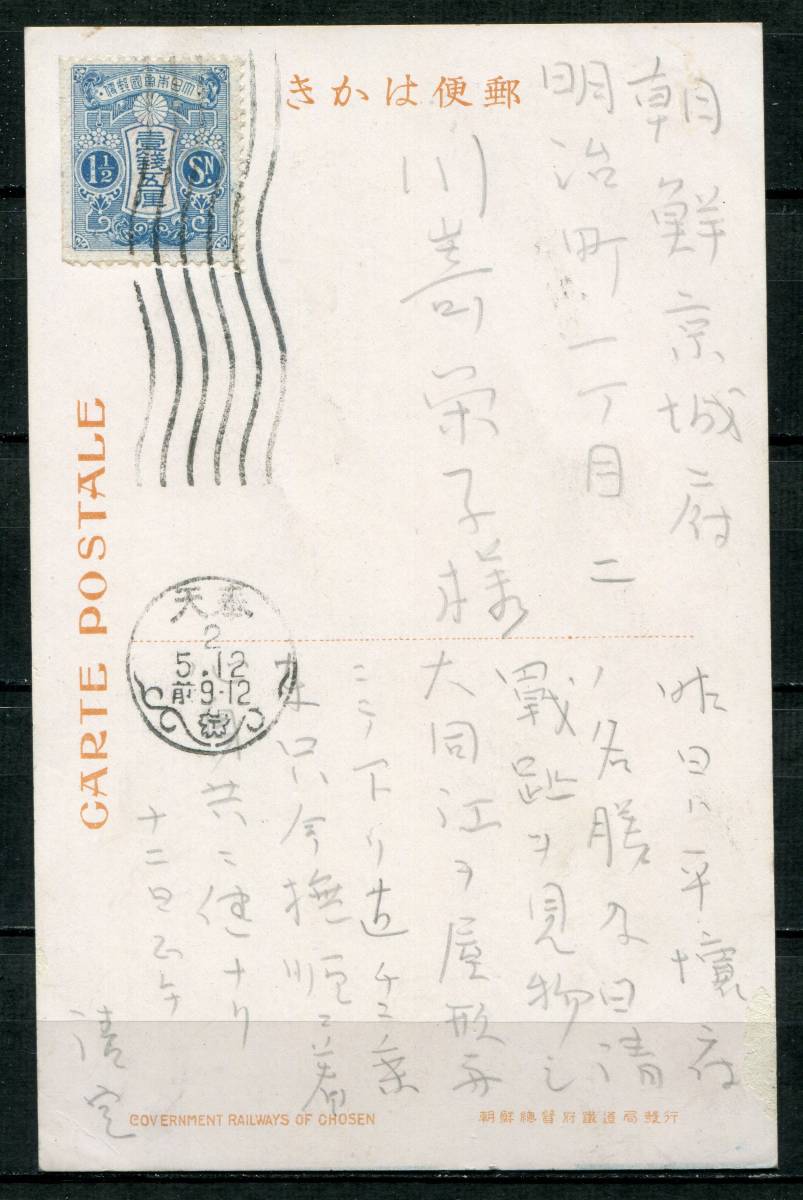 郵便はかき
朝鮮京城府
明治町一丁目二
川嵜栄子様
大日本帝国郵便
壹銭五厘
1½ SN.
CARTE POSTALE
奉天
2
5.12
前9-12
昨日ハ平壌府
ノ名勝及日清
戦趾ヲ見物シ
大同江ヲ屋形舟
ニテ下リ
只今撫順ニ着
共ニ健ナリ
十二日正午
清定
GOVERNMENT RAILWAYS OF CHOSEN
朝鮮總督府鐵道局發行